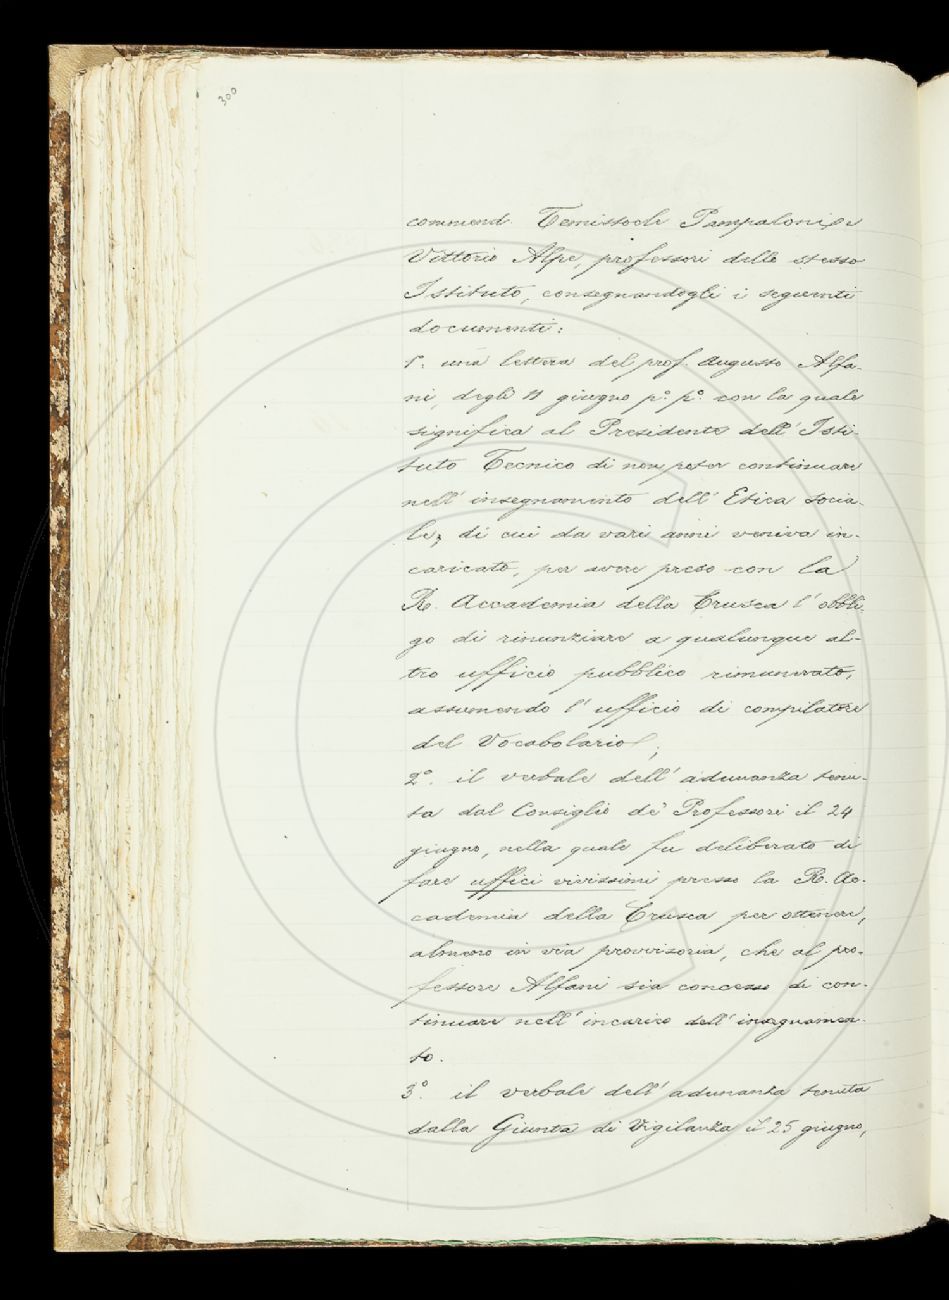 300
commend. Temistocle Pampaloni, e
Vittorio Alpe, professori dello stesso
Istituto, consegnandogli i seguenti
documenti:
1°. una lettera del prof. Augusto Alfa-
ni, degli 11 giugno p°. p°. con la quale
significa al Presidente dell' Isti-
tuto Tecnico di non poter continuare
nell' insegnamento dell' Etica socia-
le, di cui da vari anni veniva in-
caricato, per avere preso con la
R. Accademia della Crusca l' obbli-
go di rinunziare a qualunque al-
tro ufficio pubblico rimunerato,
assumendo l' ufficio di compilatore
del Vocabolario;
2°. il verbale dell' adunanza tenu-
ta dal Consiglio de' Professori il 24
giugno, nella quale fu deliberato di
fare uffici vivissimi presso la R. Ac-
cademia della Crusca per ottenere,
almeno in via provvisoria, che al pro-
fessore Alfani sia concesso di con-
tinuare nell' incarico dell' insegnamen-
to.
3°. il verbale dell' adunanza tenuta
dalla Giunta di Vigilanza il 25 giugno,